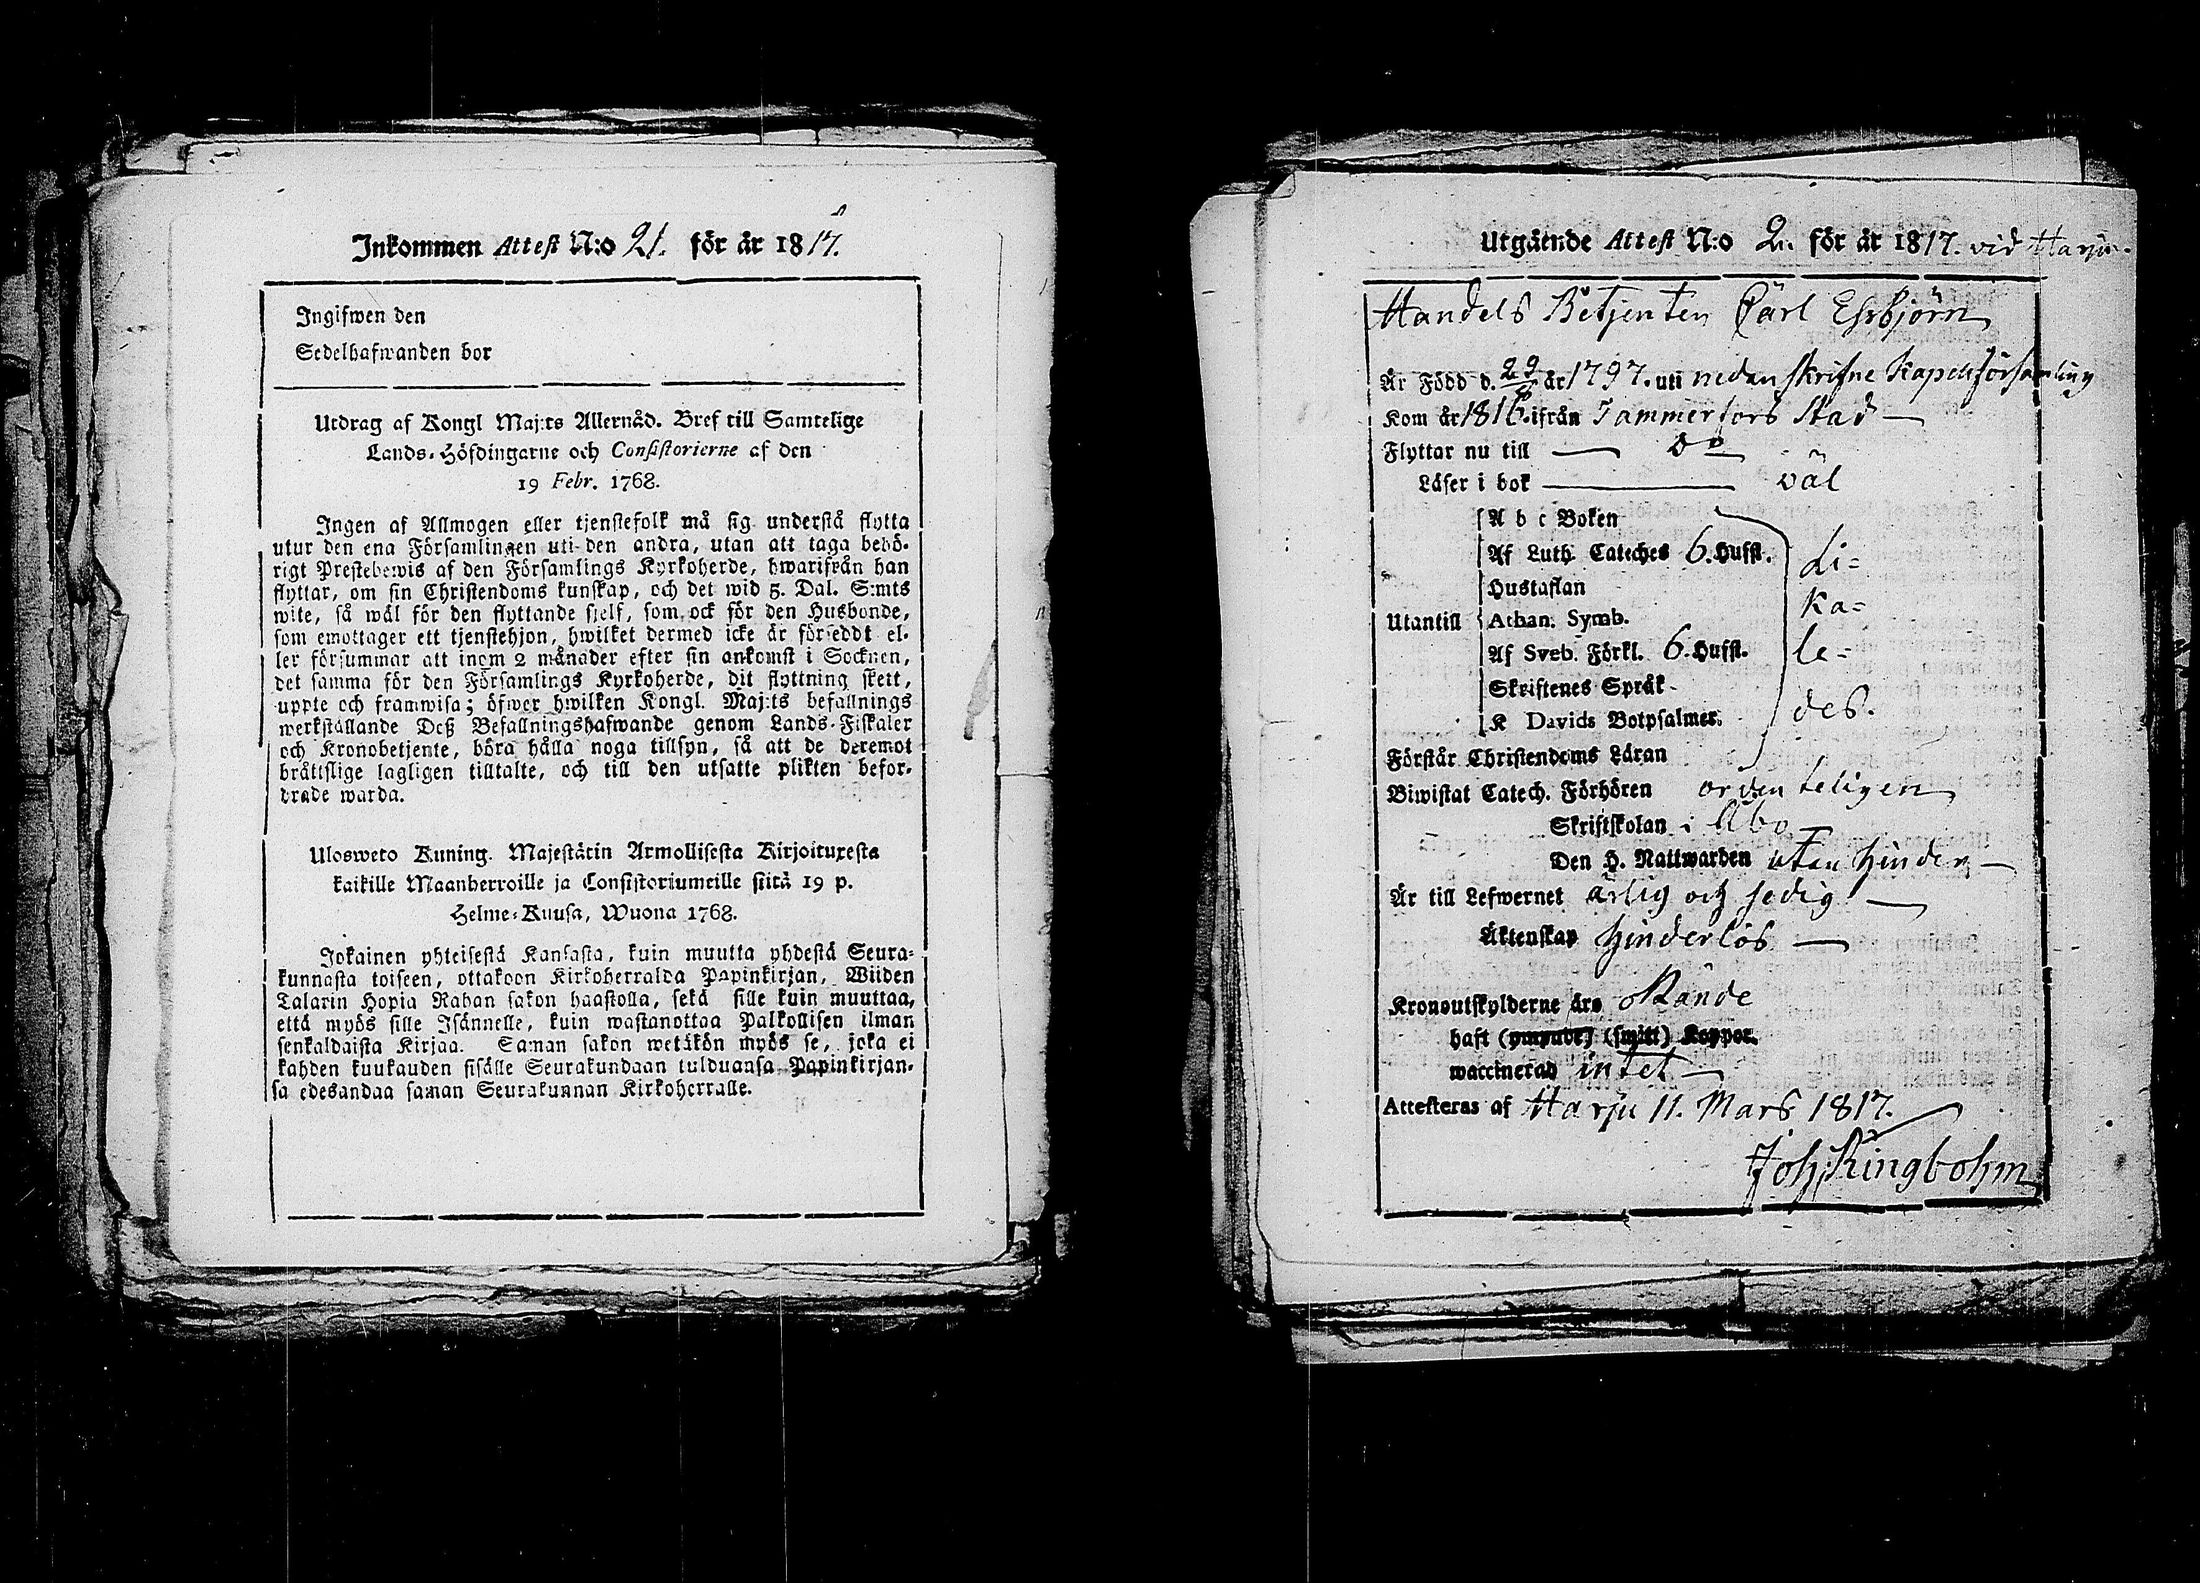 Inkommen Attest N:o 21. för år 1817.
Ingifwen den
Sedelhafwanden bor
Utdrag af Kongl Maj:ts Allernåd. Bref till Samtelige
Lands-Höfdingarne och Consistorierne af den
19 Febr. 1768.
Ingen af Allmogen eller tjenstefolk må sig understå flytta
utur den ena Församlingen uti den andra, utan att taga behö-
rigt Prestebewis af den Församlings Kyrkoherde, hwarifrån han
flyttar, om sin Christendoms kunskap, och det wid 5. Dal. S:mts
wite, så wäl för den flyttande sjelf, som ock för den Husbonde,
som emottager ett tjenstehjon, hwilket dermed icke är förseddt el-
ler försummar att inom 2 månader efter sin ankomst i Socknen,
det samma för den Församlings Kyrkoherde, dit flyttning skett,
uppte och framwisa; öfwer hwilken Kongl. Maj:ts befallnings
werkställande Deß Befallningshafwande genom Lands-Fiskaler
och Kronobetjente, böra hålla noga tillsyn, så att de deremot
bråttslige lagligen tilltalte, och till den utsatte plikten befor-
drade warda.
Ulosweto Kuning. Majestätin Armollisesta Kirjoituxesta
kaikille Maanherroille ja Consistoriumeille siitä 19 p.
Helme-Kuusa, Wuona 1768.
Jokainen yhteisestä Kansasta, kuin muutta yhdestä Seura-
kunnasta toiseen, ottakoon Kirkoherralda Papinkirjan, Wiiden
Talarin Hopia Rahan sakon haastolla, sekä sille kuin muuttaa,
että myös sille Isännelle, kuin wastanottaa Palkollisen ilman
senkaldaista Kirjaa. Saman sakon wetäkön myös se, joka ei
kahden kuukauden sisälle Seurakundaan tulduansa Papinkirjan-
sa edesandaa saman Seurakunnan Kirkoherralle.
Utgående Attest N:o 2. för år 1817. vid Harju.
Handels Betjenten Carl Essbjörn
Är Född d. 22 år 1797. uti nedanskrifne Kapellförsamling
Kom år 1816. ifrån Tammerfors Stad
Flyttar nu till — Do
Läser i bok — väl
A b c Boken
Af Luth. Cateches 6. Hufst. li-
Hustaflan ka-
Utantill Athan. Symb.
Af Sveb. Förkl. 6. Hufst. le-
Skriftenes Språk
K Davids Botpsalmer. des.
Förstår Christendoms Läran
Biwistat Catech. Förhören ordenteligen
Skriftskolan i Åbo
Den H. Nattwarden utan hinder
Är till Lefwernet ärlig och sedig
Äktenskap hinderlös
Kronoutskylderne äro
haft (ympade) (smitt) Koppor.
waccinerad intet
Attesteras af Harju 11. Mars 1817.
Joh. Ringbohm